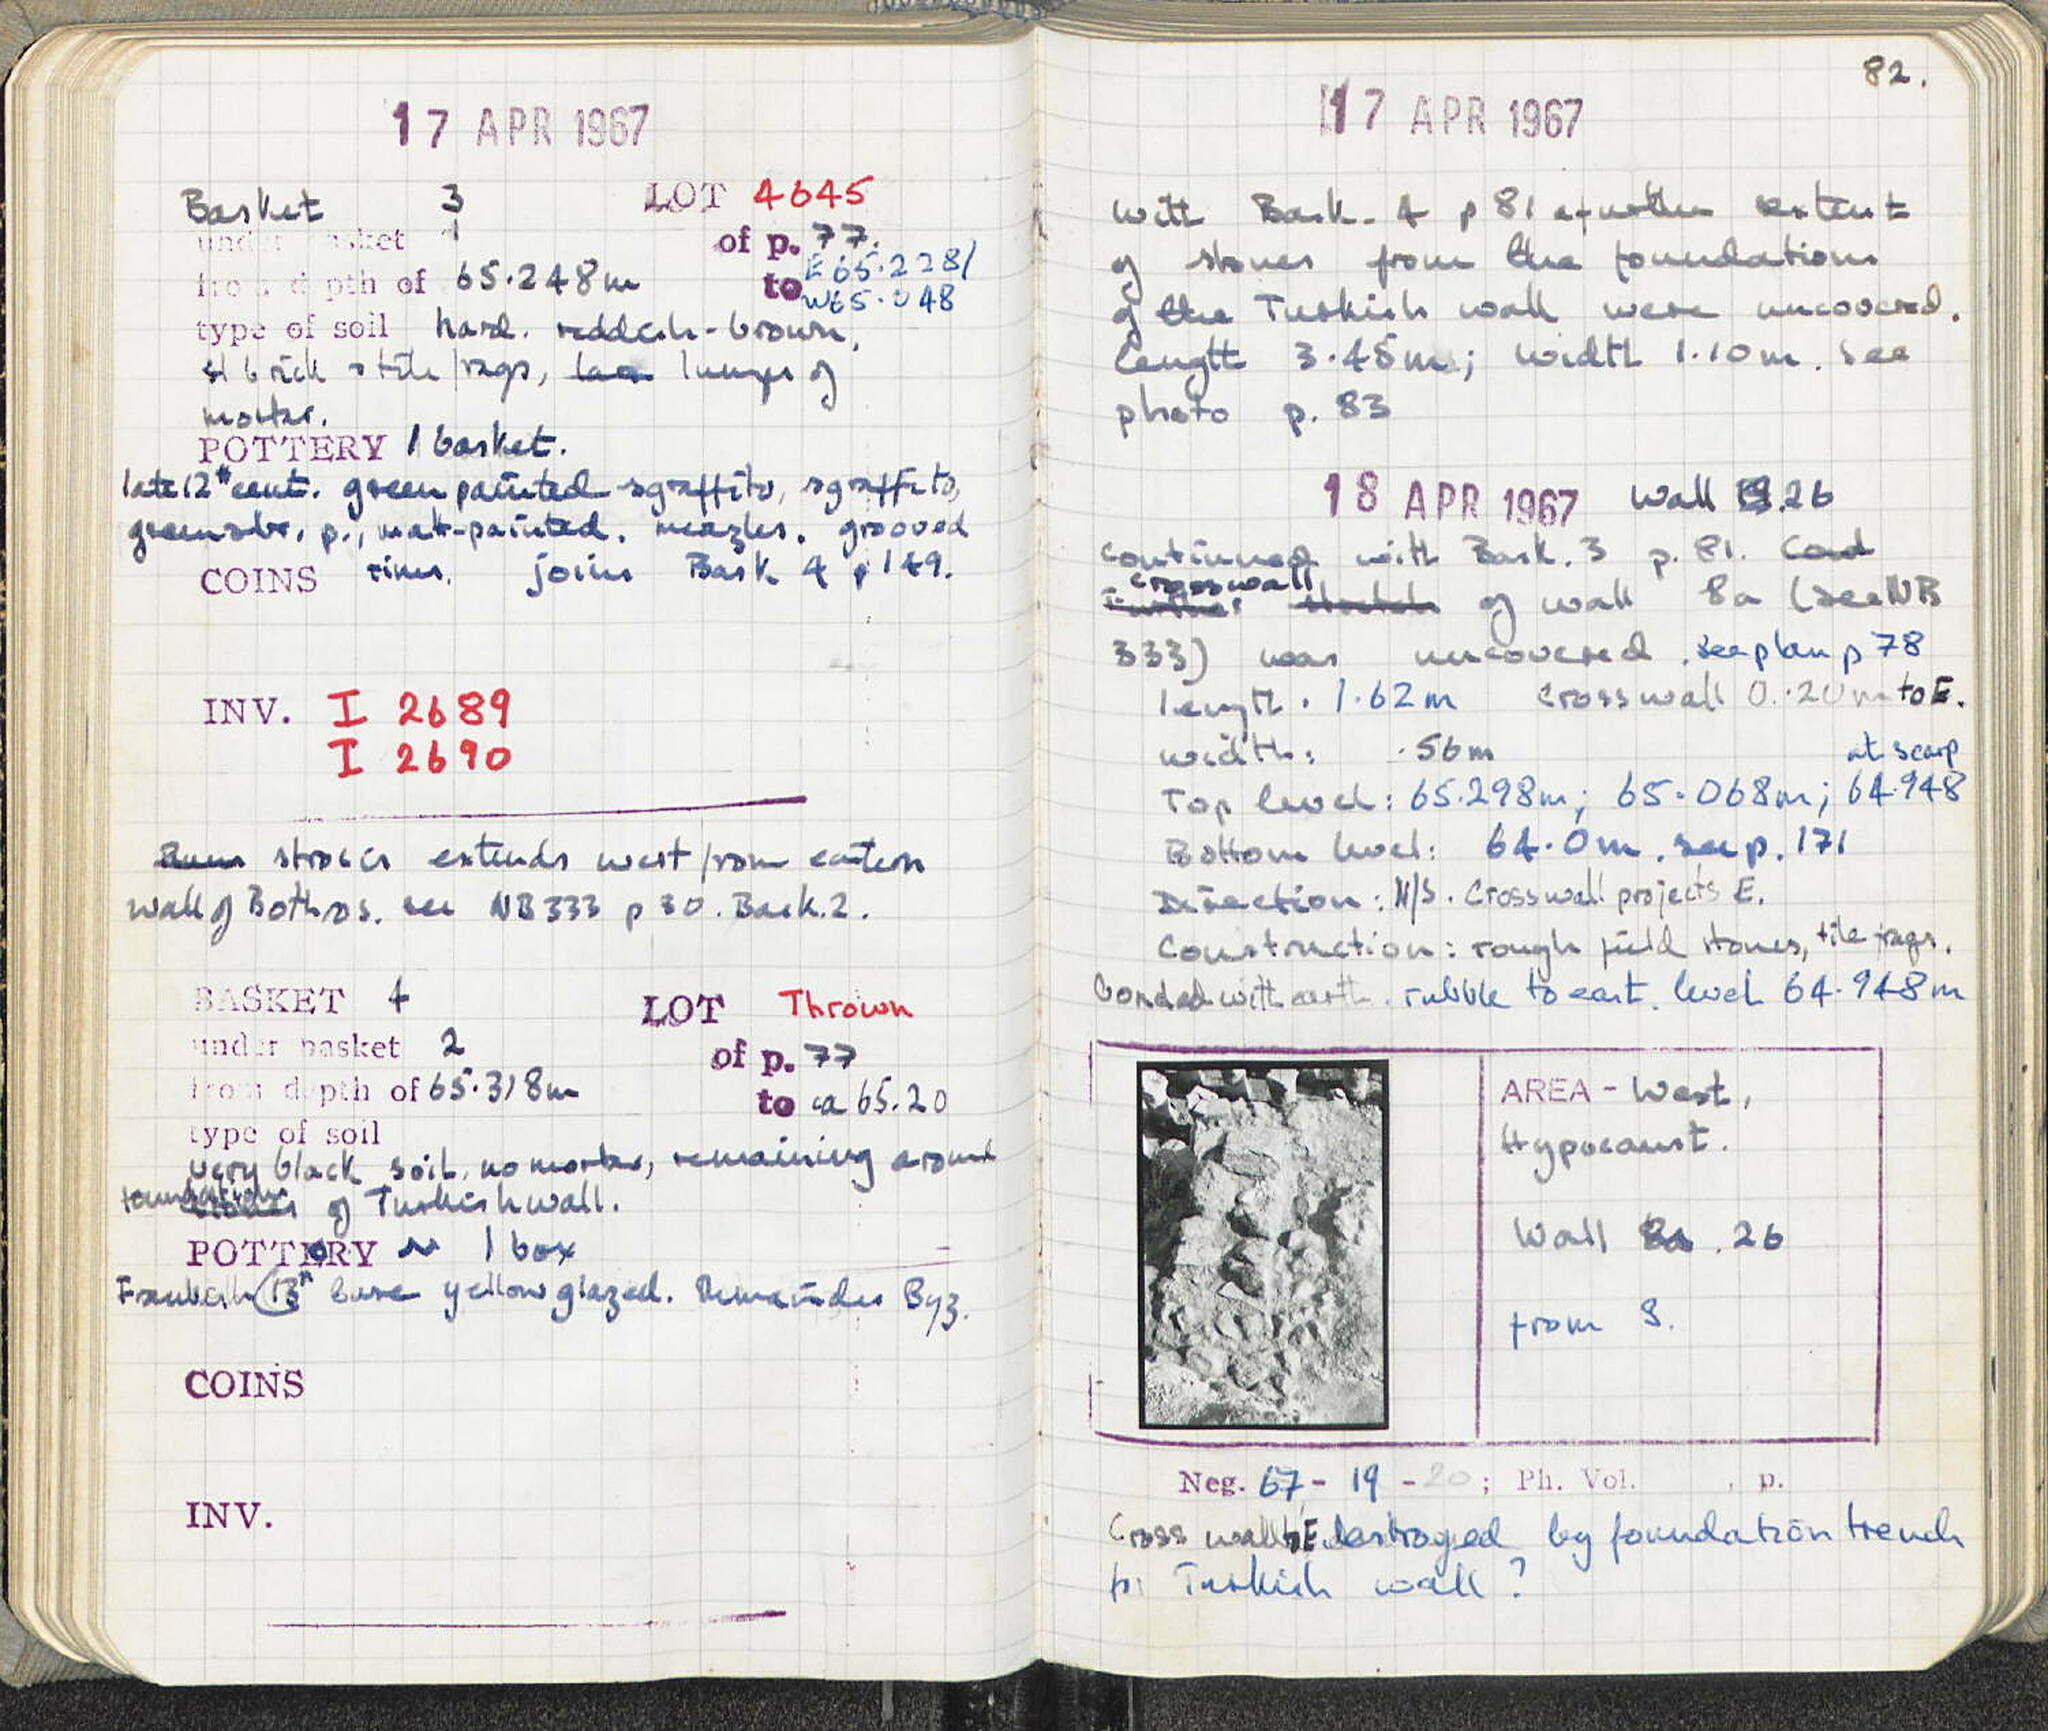 17 APR 1967
Basket 3 LOT 4645
under basket 1 of p. 77.
from depth of 65.248m to E 65.228/
W65.048
type of soil hard. reddish-brown,
brick & tile frags, lumps of
mortar.
POTTERY 1 basket.
late 12th cent. green painted sgraffito, sgraffito,
p., matt-painted. measles. grooved
COINS rims. joins Bask 4 p 149.
INV. I 2689
I 2690
strosis extends west from eastern
wall of Bothros. see NB333 p 30. Bask. 2.
BASKET 4 LOT Thrown
under basket 2 of p. 77
from depth of 65.318m to ca 65.20
type of soil
very black soil, no mortar, remaining around
foundations of Turkish wall.
POTTERY 1 box
Frankish 13th base yellow glazed. Remainder Byz.
COINS
INV.
82.
17 APR 1967
With Bask. 4 p 81 a further extent
of stones from the foundations
of the Turkish wall were uncovered.
Length 3.45m; width 1.10m. see
photo p. 83
18 APR 1967 Wall 26
continued with Bask. 3 p. 81.
crosswall
of wall 8a (see NB
333) was uncovered. see plan p 78
length. 1.62m Crosswall 0.20m to E.
width: .56m
at scarp
Top level: 65.298m; 65.068m; 64.948
Bottom level: 64.0m. see p. 171
Direction: N/S. Crosswall projects E.
Construction: rough field stones, tile frags.
bonded with earth. rubble to east. level 64.948m
AREA - West,
Hypocaust.
Wall 26
from S.
Neg. 67 - 19 - 20; Ph. Vol. , p.
Cross wall to E destroyed by foundation trench
for Turkish wall?